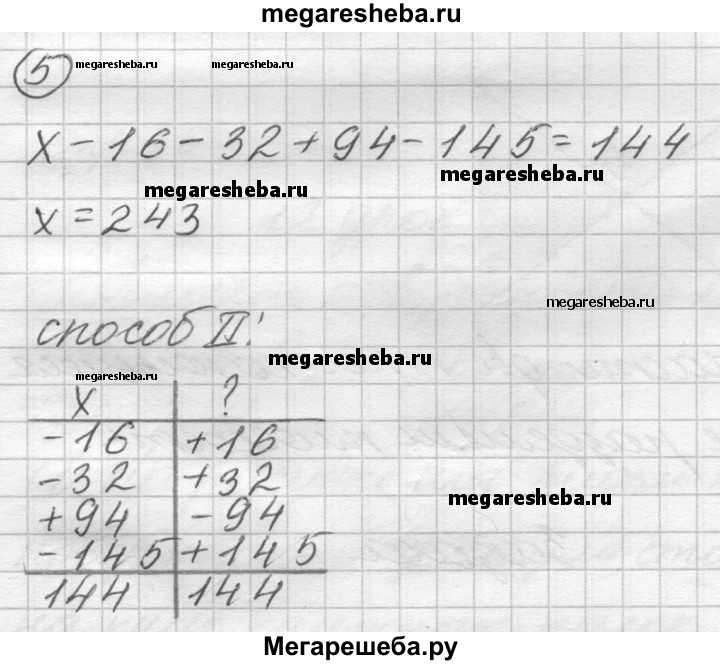 megaresheba.ru
5 megaresheba.ru megaresheba.ru
x - 16 - 32 + 94 - 145 = 144
megaresheba.ru
megaresheba.ru
x = 243
megaresheba.ru
способ II:
megaresheba.ru
megaresheba.ru
x ?
-16 +16
-32 +32
megaresheba.ru
+94 -94
-145 +145
144 144
Мегарешеба.ру